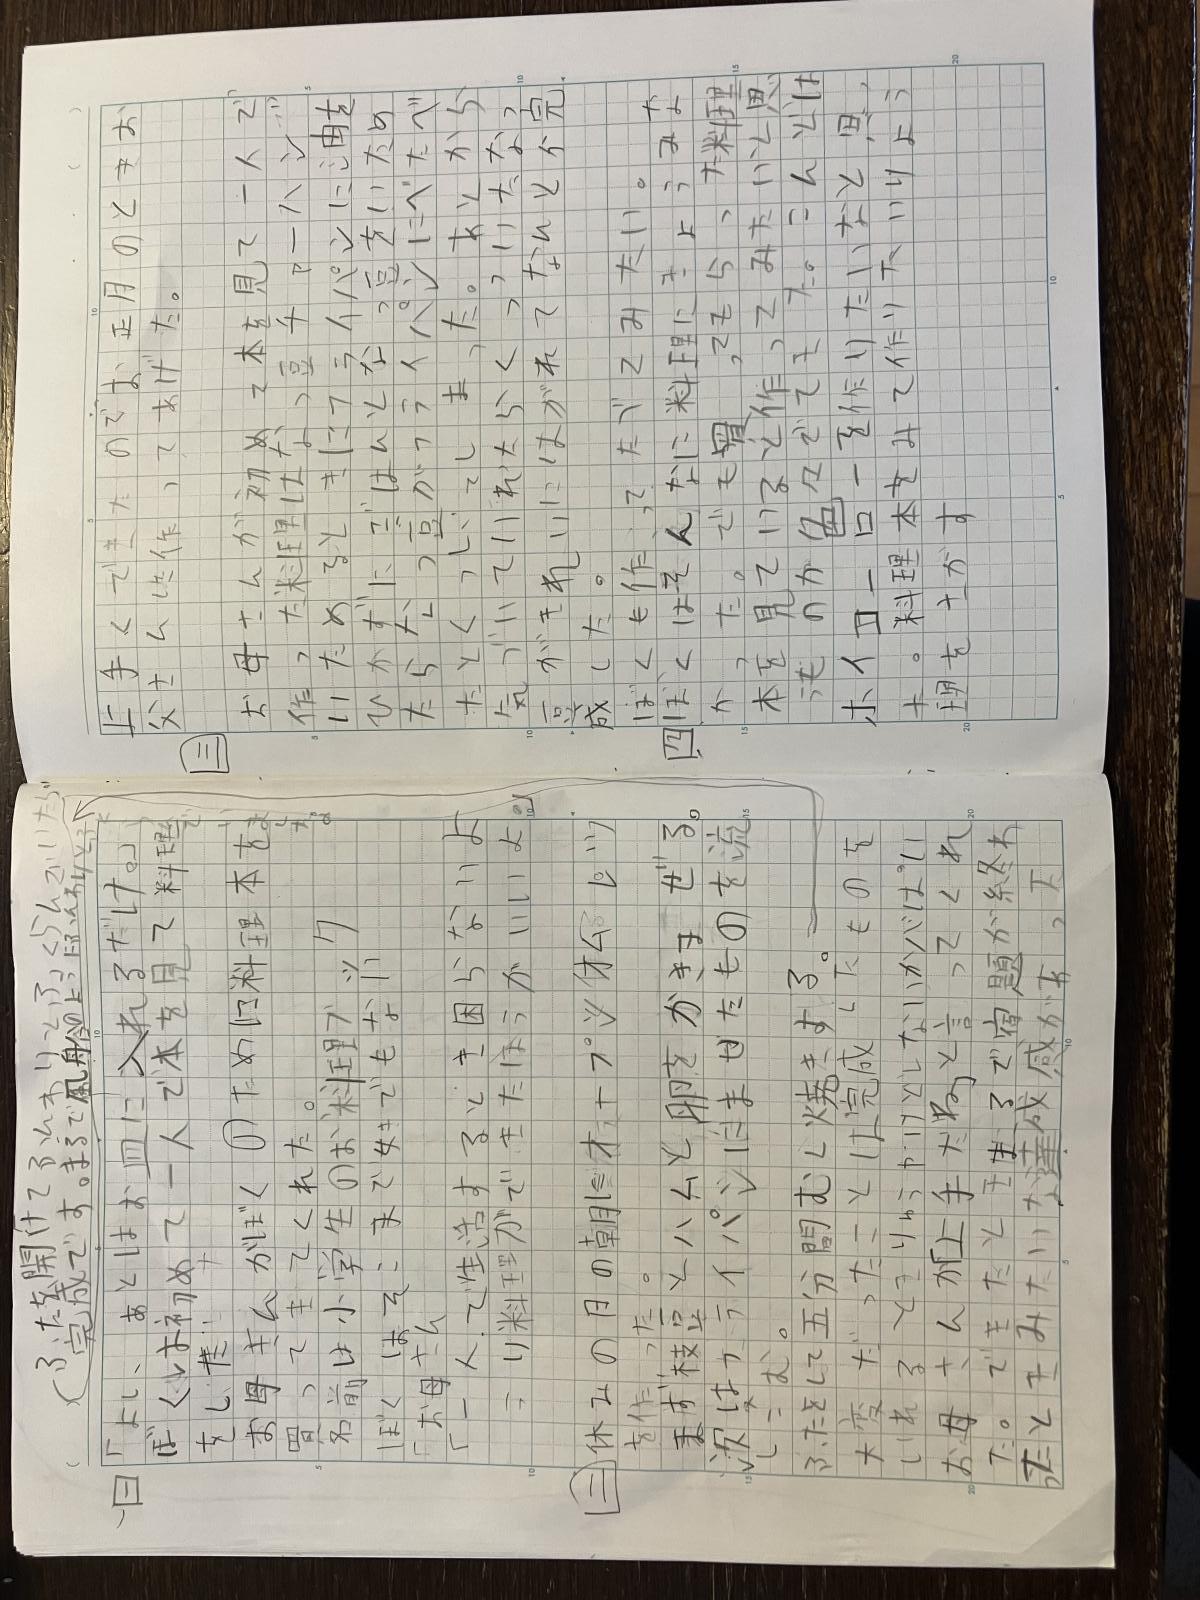 (ふたを開けてふんわりとふくらんでいたら
完成です。まるで風船
一 「よし、あとはお皿に入れるだけ。」
ぼくは初めて一人で本を見て料理
をした。
お母さんがぼくのために料理本を
買ってきてくれた。
名前は小学生のお料理ブック
ぼくはそこまで好きでもない
「お母さん
「一人で生活するとき困らないよ
うに料理ができたほうがいいよ。」
二 休みの日の朝にオープンオムレツ
を作った。
まず枝豆とハムと卵をかきまぜる。
次はフライパンにませたものを流
しこむ。
ふたをして五分間むし焼きする。
大変だったことは完成したものを
お母さんが上手だねと言ってくれ
た。できたときまるで宿題が終わ
ったときみたいな達成感があった
上手くできたのでお正月のときお
父さんに作ってあげた。
三 お母さんが初めて本を見て一人で
作った料理はなっ豆チャーハン
いためるときにフライパンに油を
ひかずにごはんとなっ豆をいため
たらなっ豆がフライパンにべたべ
たとくっついてしまった。あとから
気づいていれたらくっついたなっ
豆がきれいにはがれてなんとか完
成した。
ぼくも作ってたべてみたい。
四 ぼくはそんなに料理にきょうみな
かった。でも買ってもらった料理
本を見ていると作ってみたいと思
うものが色々でてきた。こんどは
ホイコーローを作りたいなと思い
ます。料理本をみて作りたいりょう
理をさがす